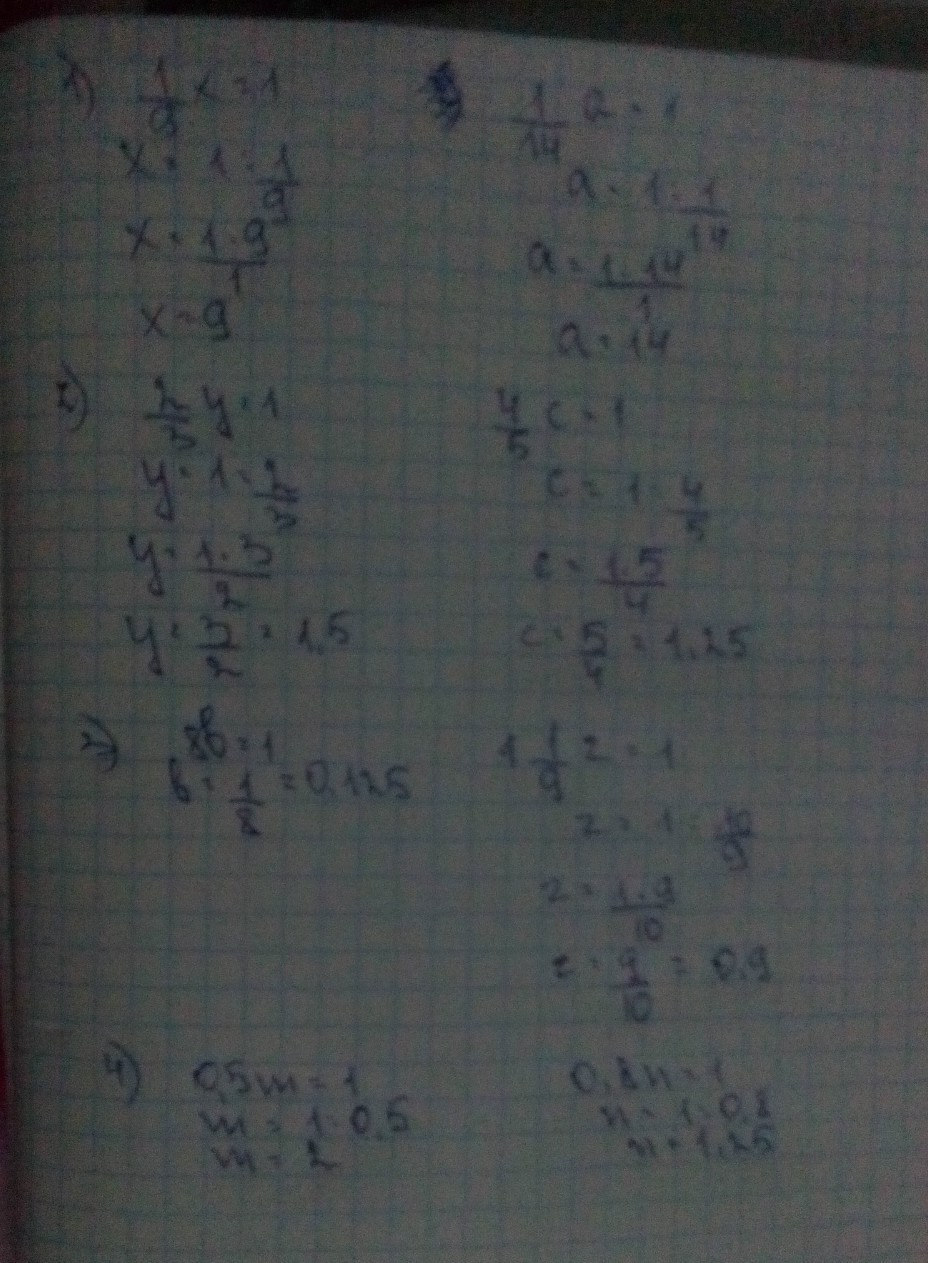 1) 1/9 x = 1
x = 1 : 1/9
x = 1·9/1
x = 9
1/14 a = 1
a = 1 : 1/14
a = 1·14/1
a = 14
2) 2/3 y = 1
y = 1 : 2/3
y = 1·3/2
y = 3/2 = 1,5
4/5 c = 1
c = 1 : 4/5
c = 1·5/4
c = 5/4 = 1,25
8b = 1
b = 1/8 = 0,125
1 1/9 z = 1
z = 1 : 10/9
z = 1·9/10
z = 9/10 = 0,9
4) 0,5m = 1
m = 1 : 0,5
m = 2
0,8n = 1
n = 1 : 0,8
n = 1,25